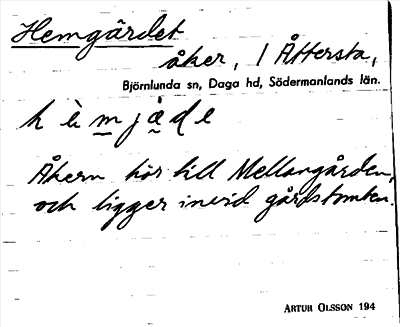 Hemgärdet
åker, / Åttersta,
Björnlunda sn, Daga hd, Södermanlands län.
h è m j ä d e
Åkern hör till Mellangården,
och ligger invid gårdstomten.
ARTUR OLSSON 194